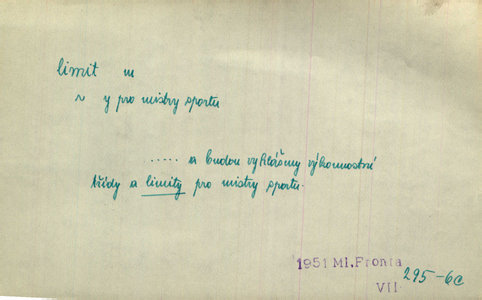 limit m
~ y pro mistry sportu
..... a budou vyhlášeny výkonnostní
třídy a limity pro mistry sportu.
1951 Ml.Fronta
295-6c
VII